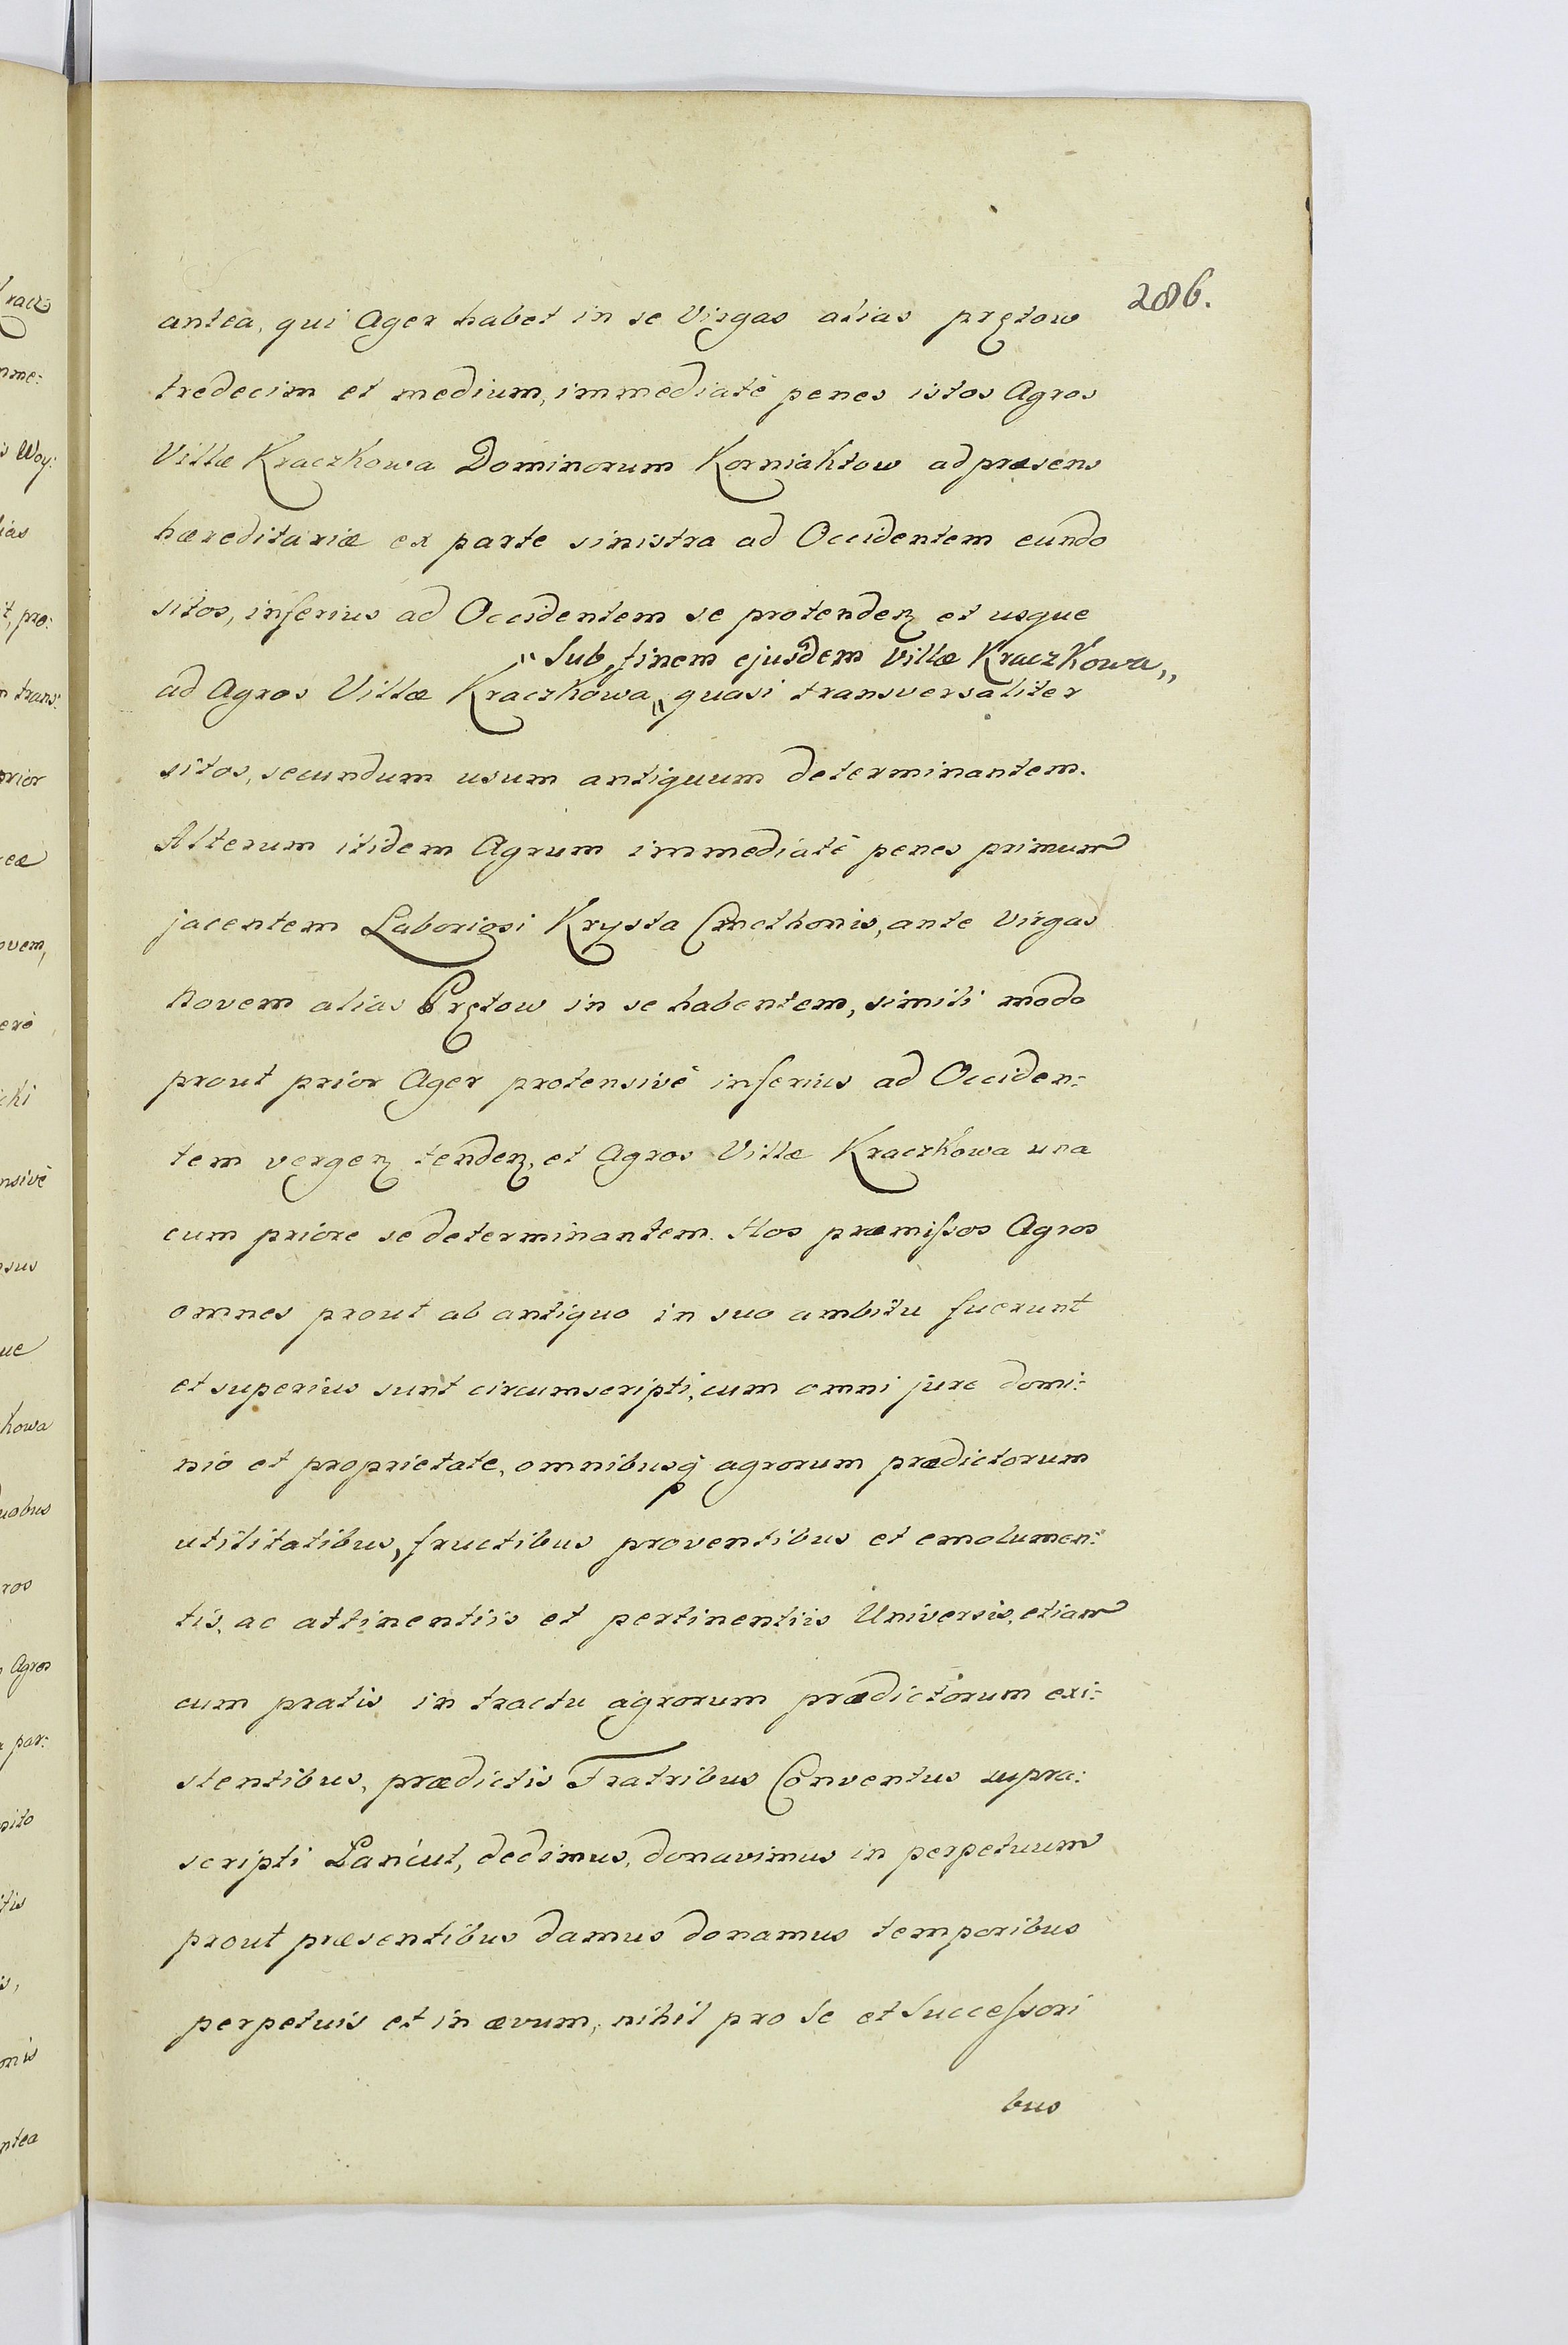 286.
antea, qui Ager habet in se Virgas alias prętow
tredecim et medium, immediatè penes istos Agros
Villæ Kraczkowa Dominorum Korniaktow ad præsens
hæreditariæ ex parte sinistra ad Occidentem eundo
sitos, inferius ad Occidentem se protendeɳ et usque
" Sub finem ejusdem Villæ Kraczkowa "
ad Agros Villæ Kraczkowa " quasi transversaliter
sitos, secundum usum antiquum determinantem.
Alterum itidem Agrum immediatè penes primum
jacentem Laboriosi Krysta Cmethonis, ante Virgas
Novem alias Prętow in se habentem, simili modo
prout prior Ager protensivè inferius ad Occiden:
tem vergeɳ tendeɳ, et Agros Villæ Kraczkowa una
cum priore se determinantem. Hos præmiſsos Agros
omnes prout ab antiquo in suo ambitu fuerunt
et superius sunt circumscripti, cum omni jure domi:
nio et proprietate, omnibusq̃ agrorum prædictorum
utilitatibus, fructibus proventibus et emolumen:
tis, ac attinentiis et pertinentiis Universis, etiam
cum pratis in tractu agrorum prædictorum exi:
stentibus, prædictis Fratribus Conventus supra:
scripti Lancut, dedimus, donavimus in perpetuum
prout præsentibus damus donamus temporibus
perpetuis et in ævum, nihil pro se et Succeſsori
bus